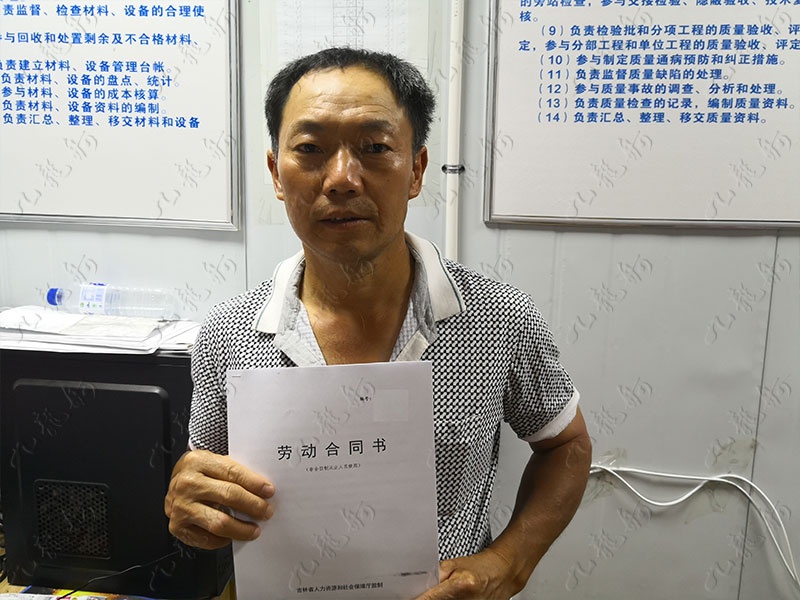 责监督、检查材料、设备的合理使
参与回收和处置剩余及不合格材料、
负责建立材料、设备管理台帐
负责材料、设备的盘点、统计。
参与材料、设备的成本核算。
负责材料、设备资料的编制。
负责汇总、整理、移交材料和设备
的旁站检查,参与交接检验、隐蔽验收、技术复
核。
(9)负责检验批和分项工程的质量验收、评
定,参与分部工程和单位工程的质量验收、评定
(10)参与制定质量通病预防和纠正措施。
(11)负责监督质量缺陷的处理。
(12)参与质量事故的调查、分析和处理。
(13)负责质量检查的记录,编制质量资料。
(14)负责汇总、整理、移交质量资料。
编号:
劳动合同书
吉林省人力资源和社会保障厅监制